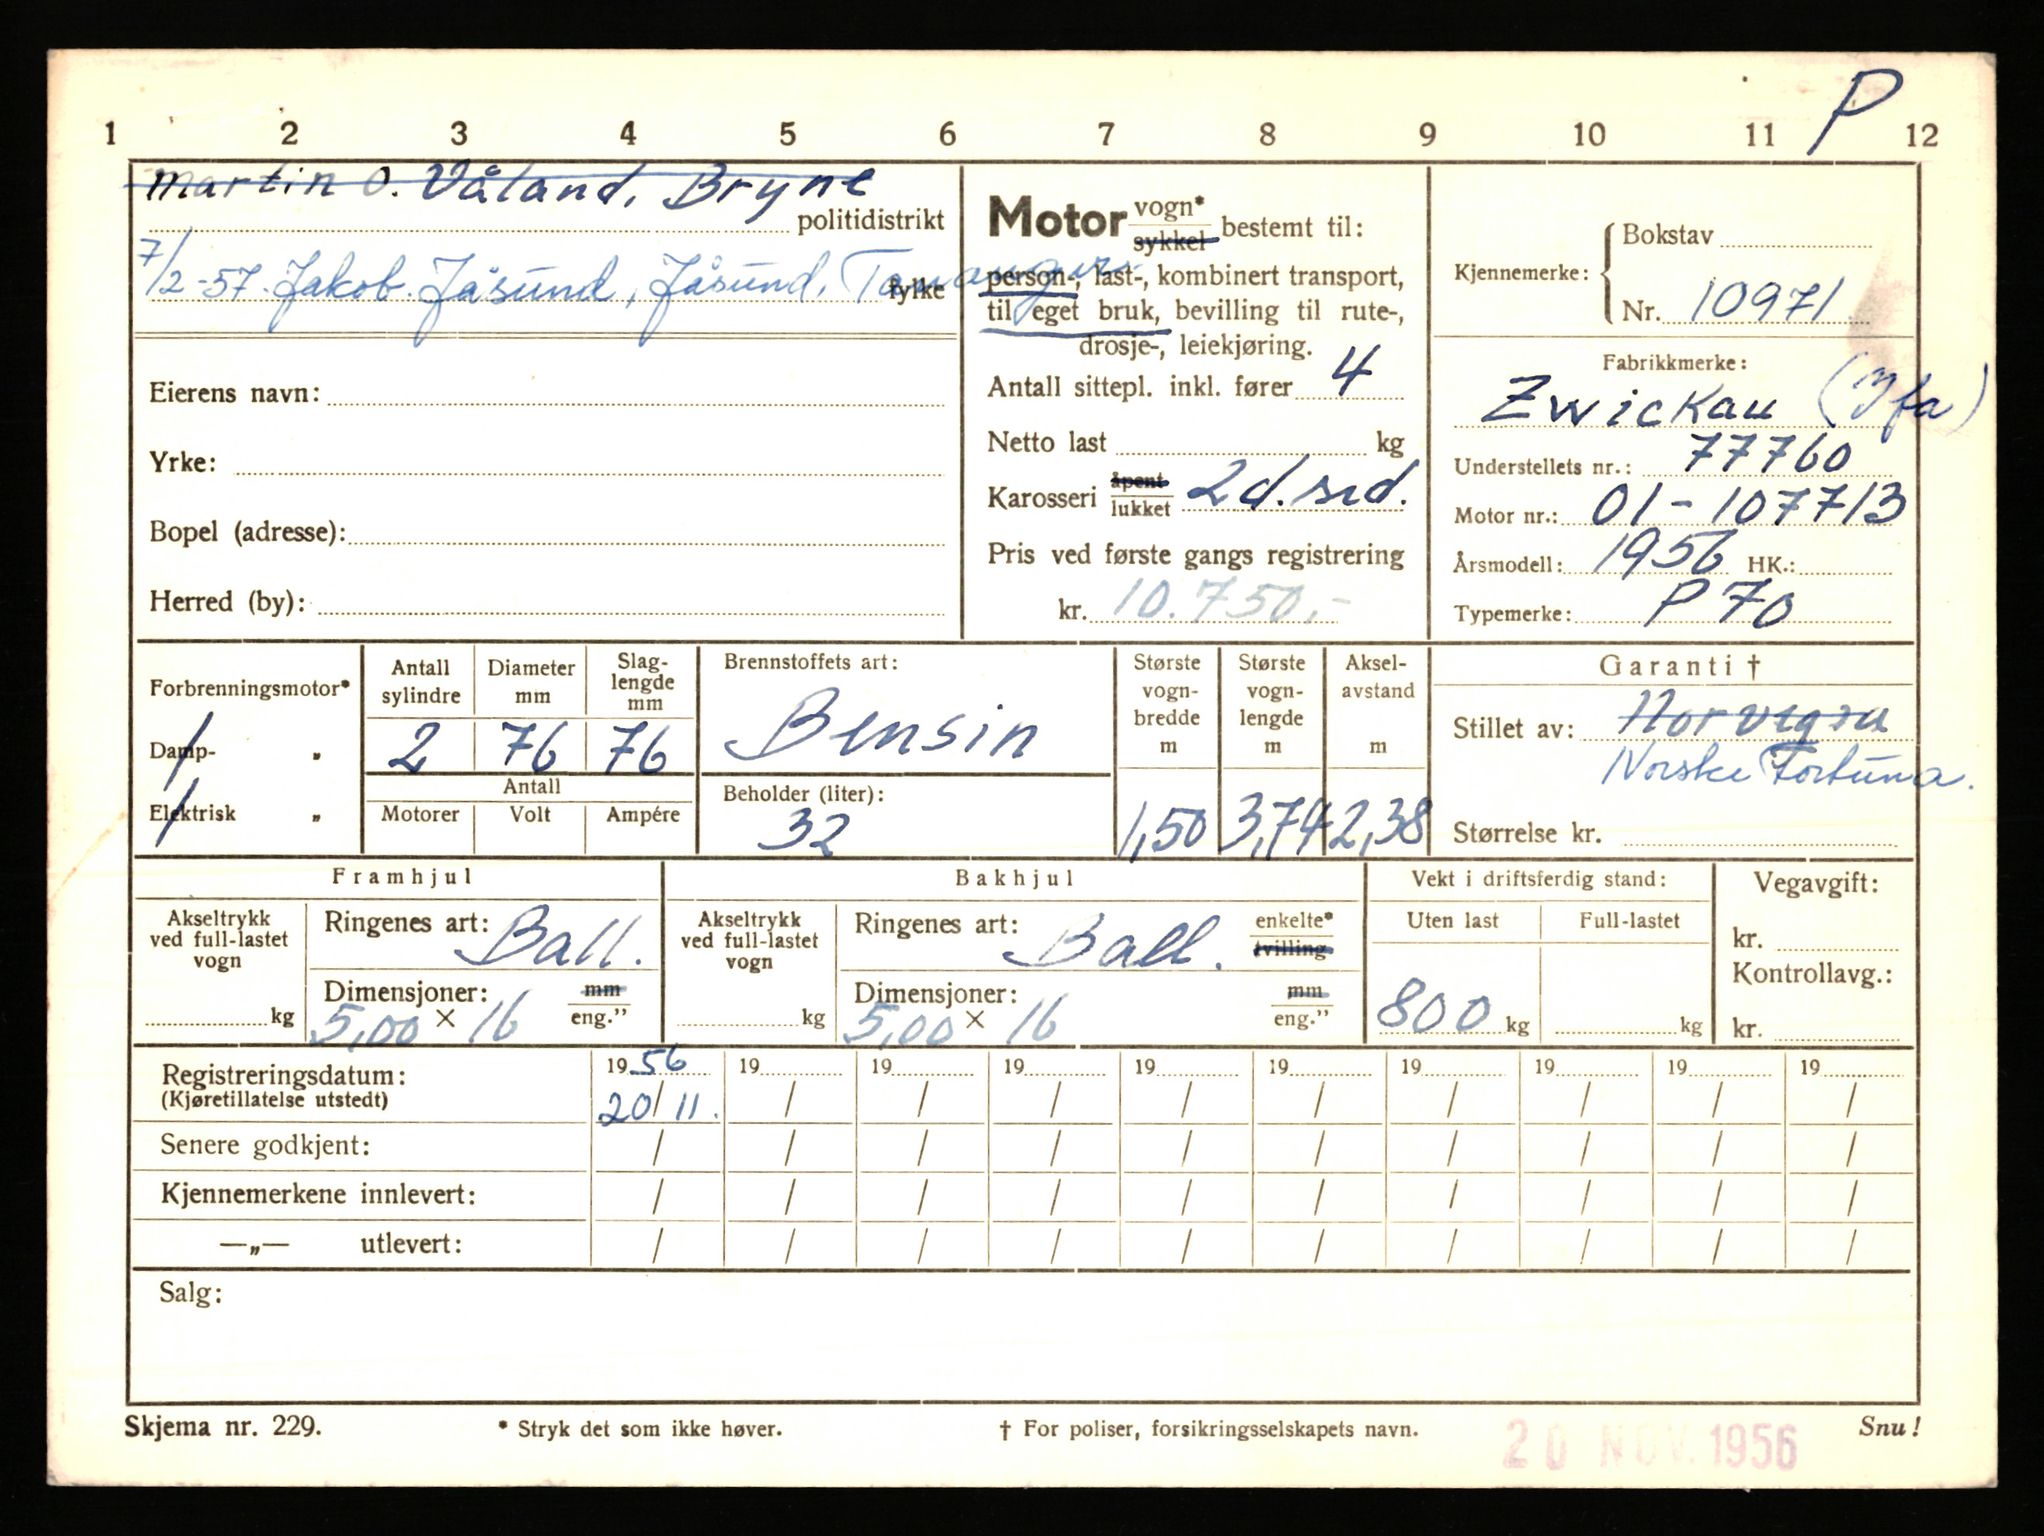 P
1 2 3 4 5 6 7 8 9 10 11 12
Martin O. Våland, Bryne
politidistrikt
7/2-57. Jakob Jåsund, Jåsund, Tananger
fylke
Eierens navn:
Yrke:
Bopel (adresse):
Herred (by):
Motor vogn* sykkel bestemt til:
person-, last-, kombinert transport,
til eget bruk, bevilling til rute-,
drosje-, leiekjøring.
Antall sittepl. inkl. fører 4
Netto last kg
Karosseri åpent lukket 2 d. sed.
Pris ved første gangs registrering
kr. 10.750,-
Kjennemerke: Bokstav
Nr. 10971
Fabrikkmerke:
Zwickau (Ifa)
Understellets nr.: 77760
Motor nr.: 01-107713
Årsmodell: 1956 HK.:
Typemerke: P 70
Forbrenningsmotor*
Damp- „
Elektrisk „
Antall sylindre Diameter mm Slag-lengde mm
2 76 76
Antall
Motorer Volt Ampére
Brennstoffets art:
Bensin
Beholder (liter):
32
Største vogn-bredde m
1,50
Største vogn-lengde m
3,74
Aksel-avstand m
2,38
Garanti †
Stillet av: Norvegia
Norske Fortuna.
Størrelse kr.
Framhjul
Akseltrykk ved full-lastet vogn
kg
Ringenes art: Ball.
Dimensjoner: mm
5,00 × 16 eng."
Bakhjul
Akseltrykk ved full-lastet vogn
kg
Ringenes art: Ball. enkelte* tvilling
Dimensjoner: mm
5,00 × 16 eng."
Vekt i driftsferdig stand:
Uten last Full-lastet
800 kg kg
Vegavgift:
kr.
Kontrollavg.:
kr.
Registreringsdatum: 1956 19 19 19 19 19 19 19 19 19
(Kjøretillatelse utstedt) 20/11. / / / / / / / / /
Senere godkjent: / / / / / / / / / /
Kjennemerkene innlevert: / / / / / / / / / /
—„— utlevert: / / / / / / / / / /
Salg:
Skjema nr. 229. * Stryk det som ikke høver. † For poliser, forsikringsselskapets navn. Snu!
20 NOV. 1956